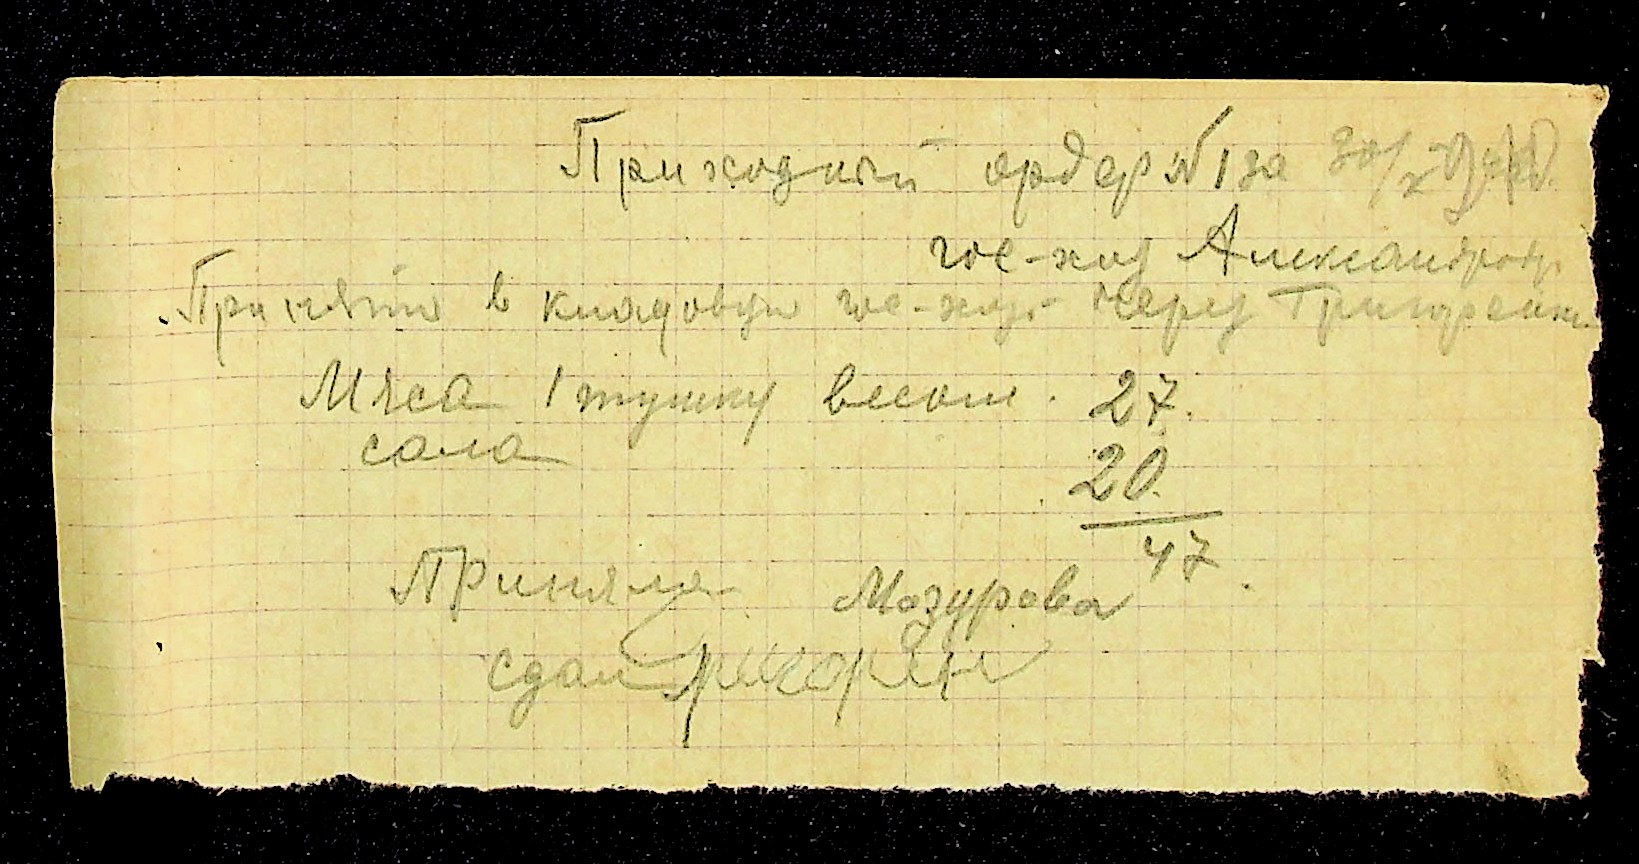 Приходный ордер №1 за 30/X
гос-хоз Александров
Принято в кладовую гос-хоз через Григорен
Мяса 1 тушку весом. 27.
сала 20.
47.
Приняла Мазурова
Сдал